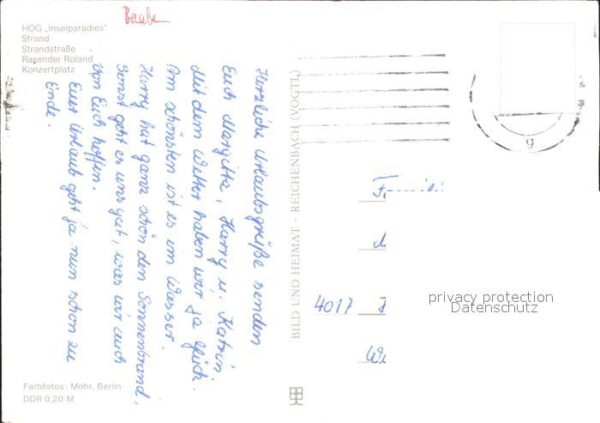 Baabe
HOG „Inselparadies"
Strand
Strandstraße
Rasender Roland
Konzertplatz
Herzliche Urlaubsgrüße senden
Euch Margitta, Harry u. Katrin
Mit dem Wetter haben wir ja Glück.
Am schönsten ist es im Wasser.
Harry hat ganz schön den Sonnenbrand,
sonst geht es uns gut, was wir auch
von Euch hoffen.
Euer Urlaub geht ja nun schon zu
Ende.
BILD UND HEIMAT · REICHENBACH (VOGTL)
Famili
4017
privacy protection
Datenschutz
Farbfotos: Mohr, Berlin
DDR 0,20 M